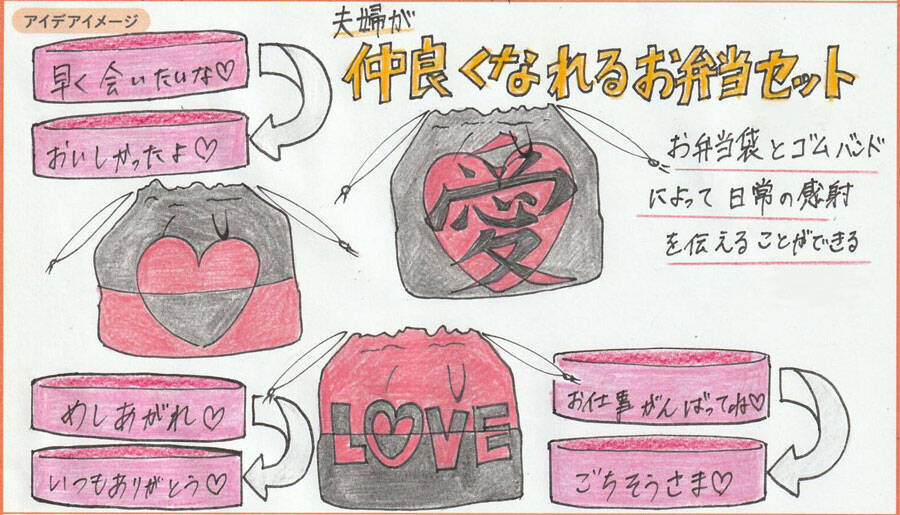 アイデアイメージ
夫婦が
仲良くなれるお弁当セット
早く会いたいな♡
おいしかったよ♡
お弁当袋とゴムバンド
によって日常の感射
を伝えることができる
愛
めしあがれ♡
いつもありがとう♡
LOVE
お仕事がんばってね♡
ごちそうさま♡